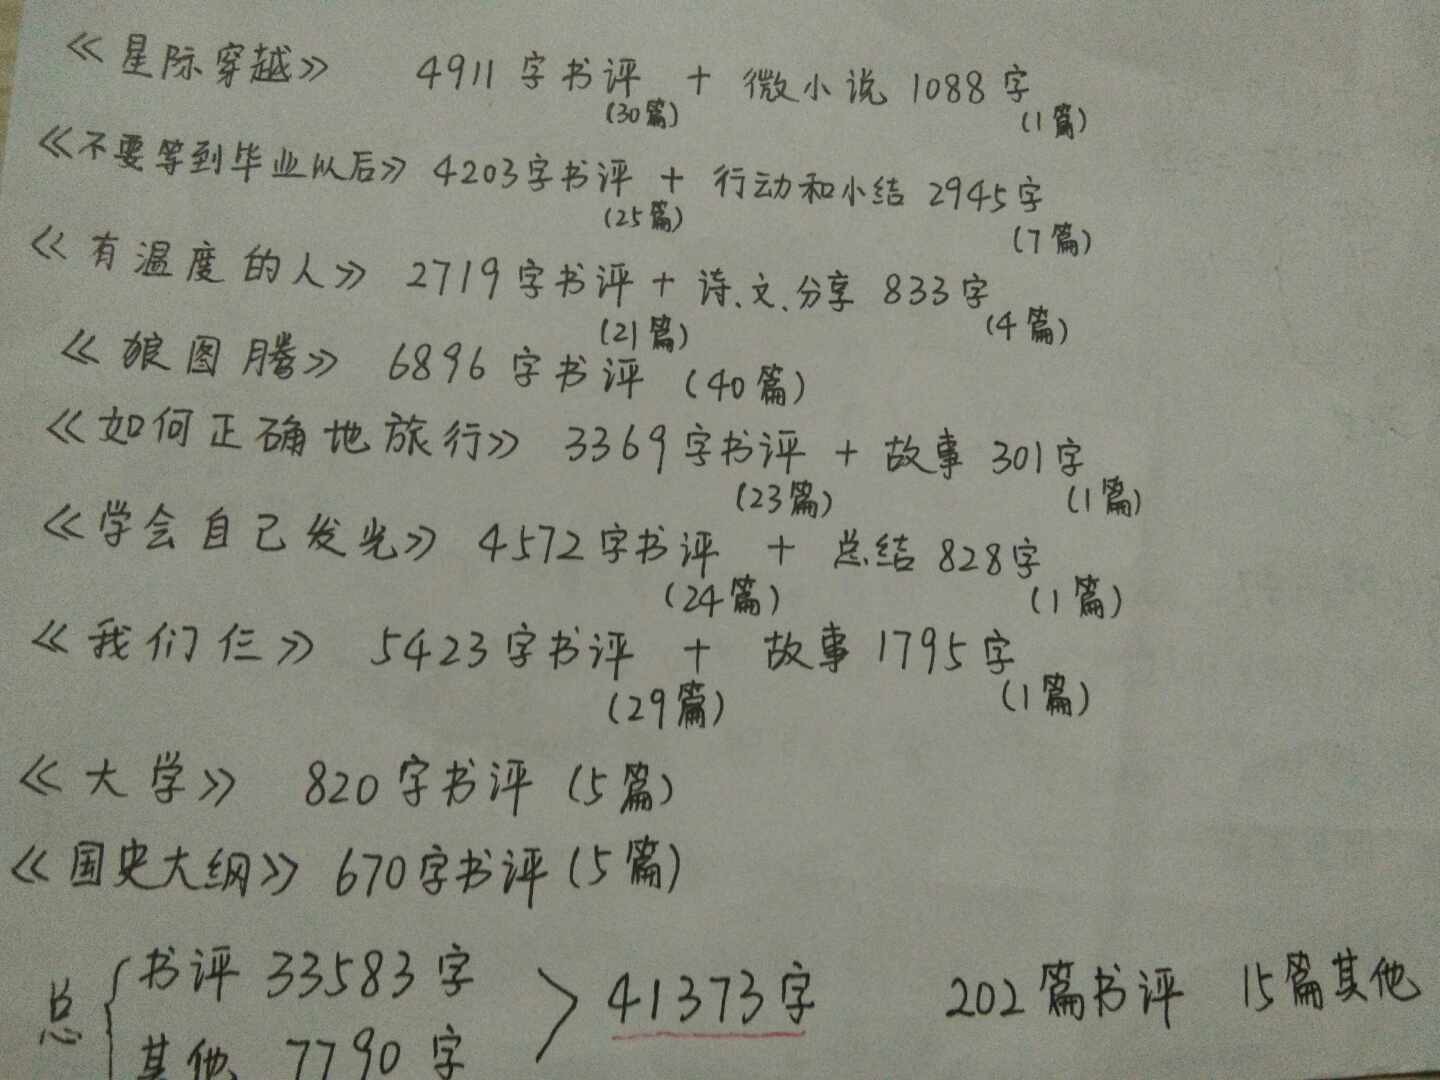 《星际穿越》 4911字书评 + 微小说 1088字
(30篇) (1篇)
《不要等到毕业以后》 4203字书评 + 行动和小结 2945字
(25篇) (7篇)
《有温度的人》 2719字书评 + 诗、文、分享 833字
(21篇) (4篇)
《狼图腾》 6896字书评 (40篇)
《如何正确地旅行》 3369字书评 + 故事 301字
(23篇) (1篇)
《学会自己发光》 4572字书评 + 总结 828字
(24篇) (1篇)
《我们仨》 5423字书评 + 故事 1795字
(29篇) (1篇)
《大学》 820字书评 (5篇)
《国史大纲》 670字书评 (5篇)
书评 33583字
总 41373字 202篇书评 15篇其他
其他 7790字